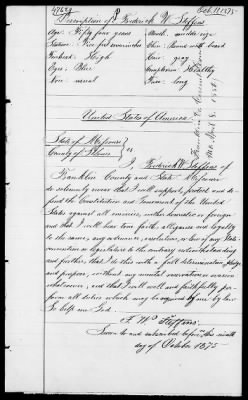 Description of Frederick W. Steffens
Age: Fifty four years
Mouth: middle size
Stature: Five feet
Chin: round with beard
Forehead: High
Hair: gray
Eyes: Blue
Complexion: Healthy
Nose: usual
Face: long
United States of America
State of Missouri
County of St Louis } ss
I, Frederick W. Steffens of
Franklin County and State Missouri
do solemnly swear that I will support, protect and de-
fend the Constitution and Government of the United
States against all enemies, whether domestic or foreign
and that I will bear true faith, allegiance and loyalty
to the same, any ordinance, resolution, or law of any State
convention or legislature to the contrary notwithstanding
and further that I do this with a full determination, pledge
and purpose, without any mental reservation or evasion
whatsoever, and that I will well and faithfully per-
form all duties which may be required of me by law
So help me God
F. W. Steffens
Sworn to and subscribed before me this ninth
day of October 1875